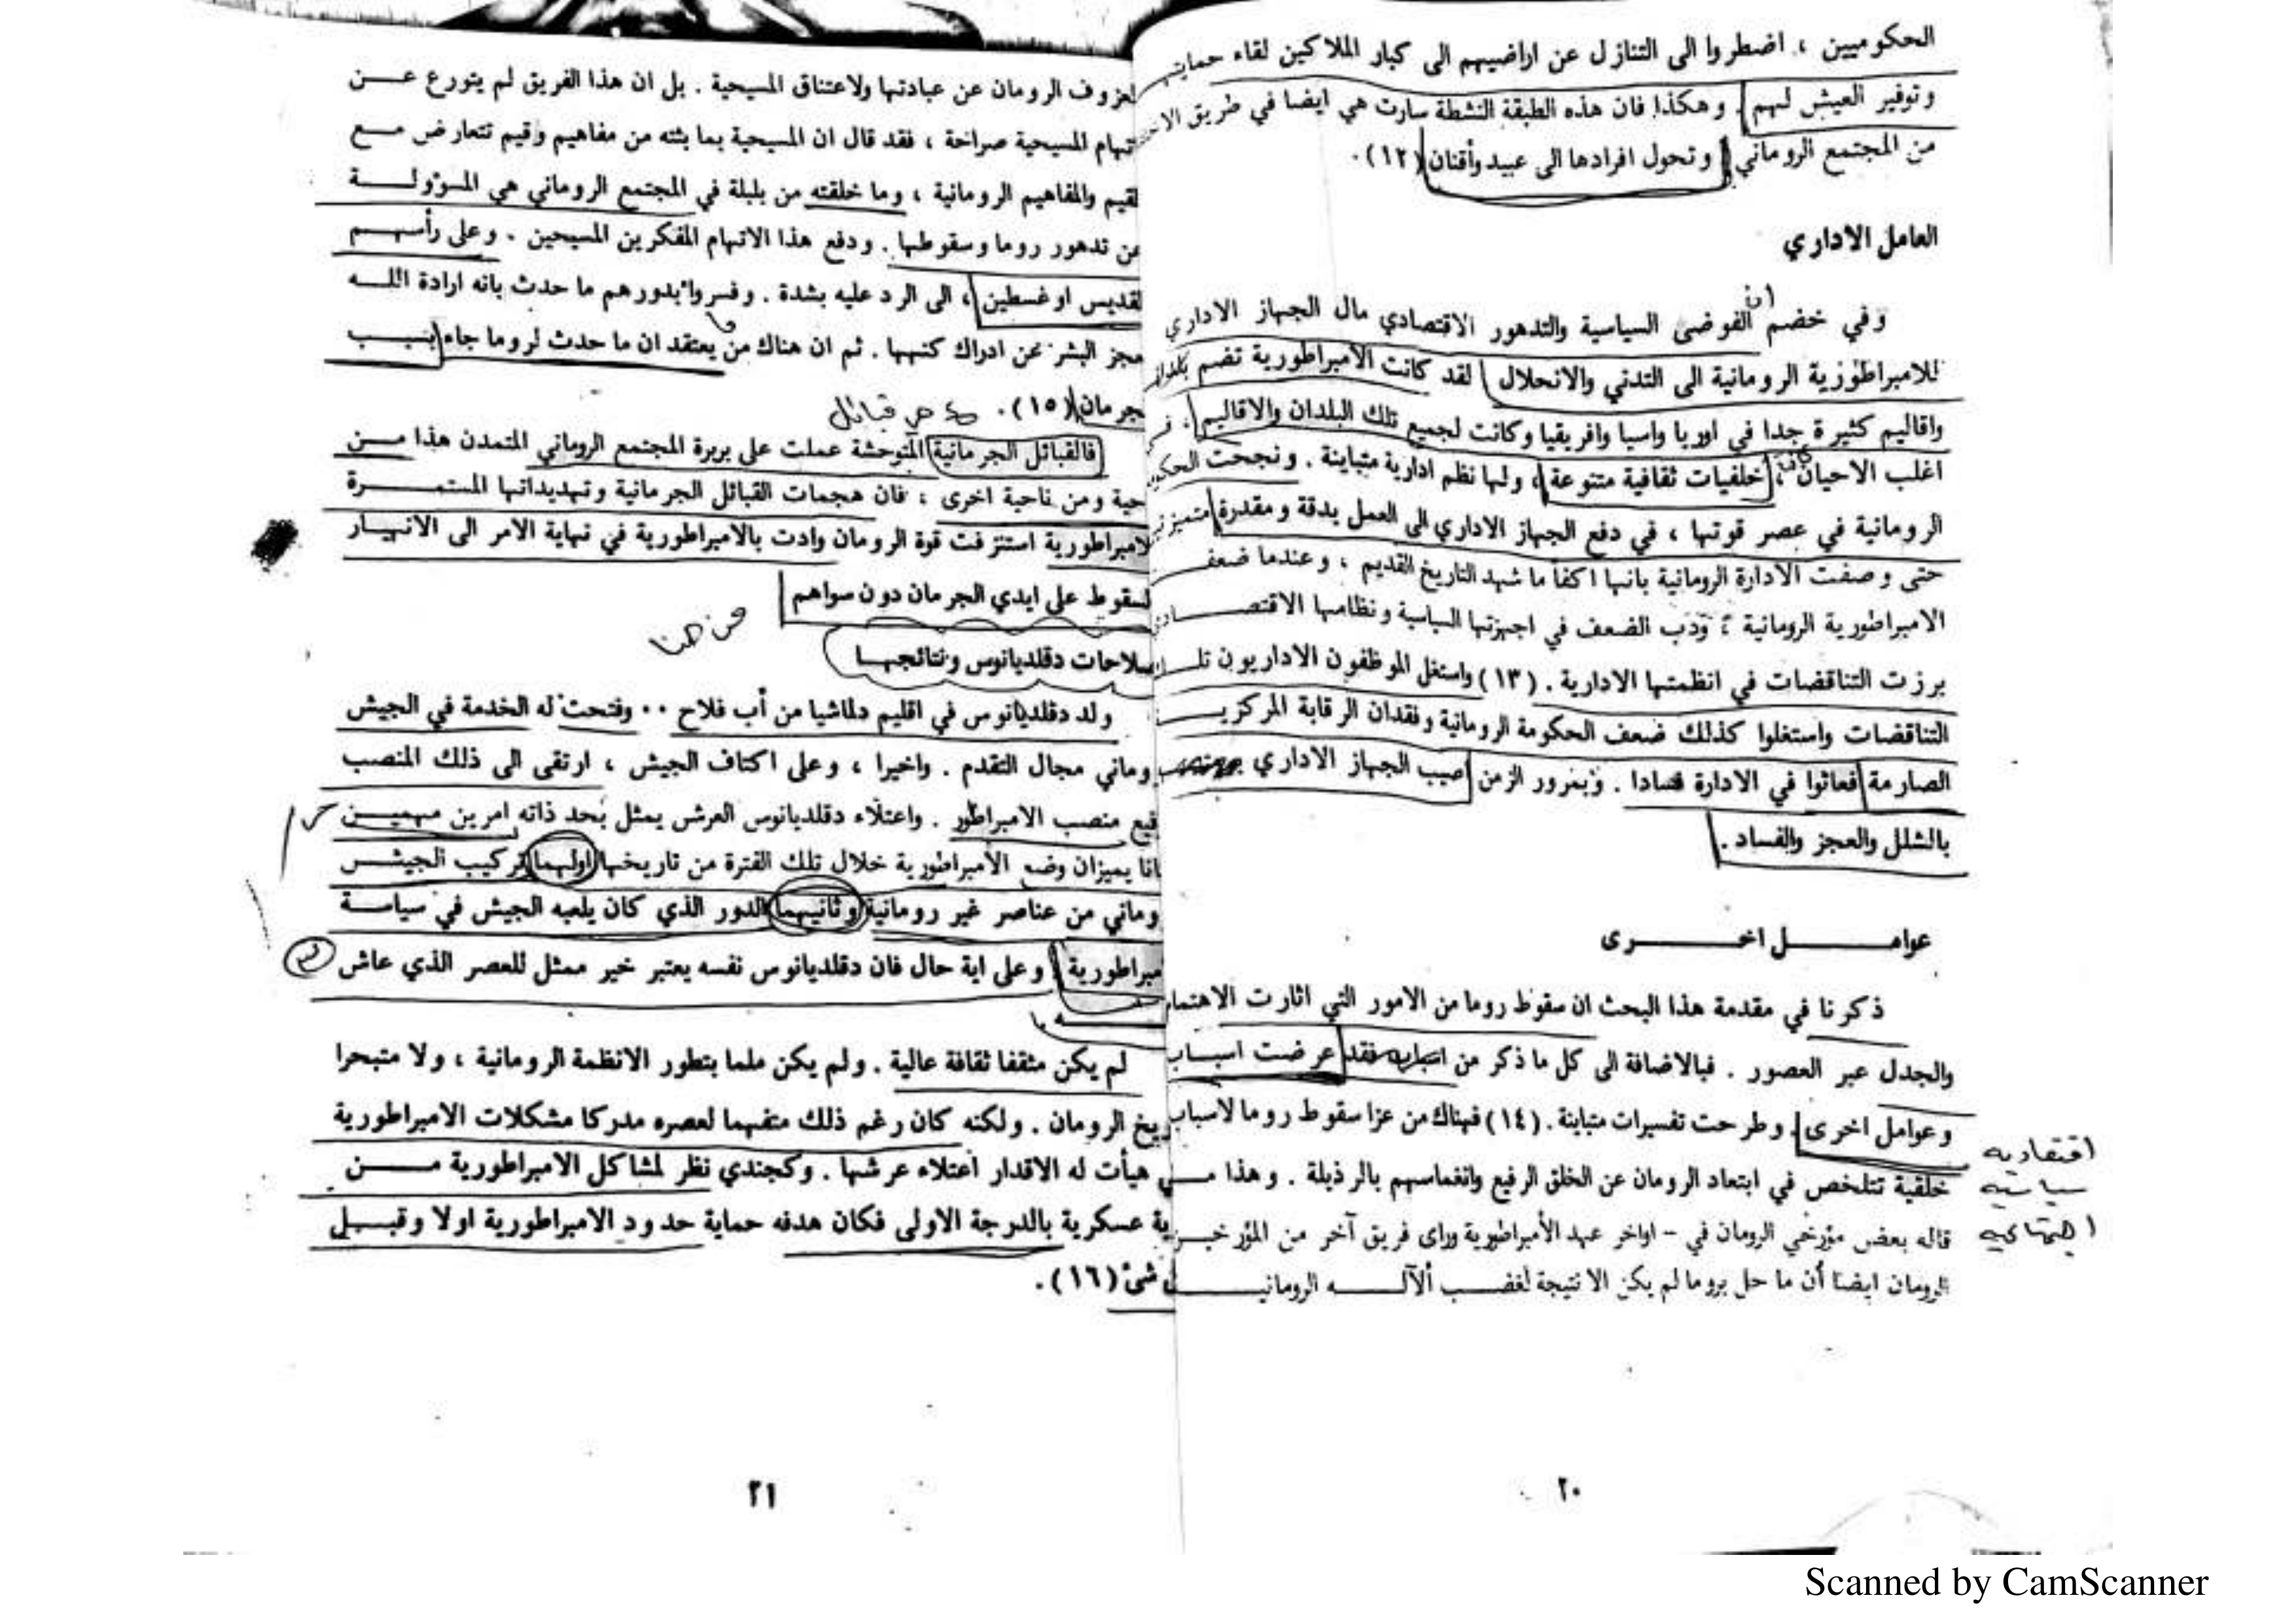 الحكوميين ، اضطروا الى التنازل عن اراضيهم الى كبار الملاكين لقاء
وتوفير العيش لهم . وهكذا فان هذه الطبقة النشطة سارت هي ايضا في طريق
من المجتمع الروماني وتحول افرادها الى عبيد وأقنان (١٢) .
العامل الاداري
ان
وفي خضم الفوضى السياسية والتدهور الاقتصادي مال الجهاز الاداري
للامبراطورية الرومانية الى التدني والانحلال لقد كانت الامبراطورية تضم
واقاليم كثيرة جدا في اوربا واسيا وافريقيا وكانت لجميع تلك البلدان والاقاليم ،
اغلب الاحيان ، خلفيات ثقافية متنوعة ، ولها نظم ادارية متباينة . ونجحت
الرومانية في عصر قوتها ، في دفع الجهاز الاداري الى العمل بدقة ومقدرة
حتى وصفت الادارة الرومانية بانها اكفأ ما شهد التاريخ القديم ، وعندما ضعف
الامبراطورية الرومانية ، ودب الضعف في اجهزتها السياسية ونظامها
برزت التناقضات في انظمتها الادارية . (١٣) واستغل الموظفون الاداريون
التناقضات واستغلوا كذلك ضعف الحكومة الرومانية وفقدان الرقابة المركزيـــ
الصارمة فعاثوا في الادارة فسادا . وبمرور الزمن اصيب الجهاز الاداري
بالشلل والعجز والفساد .
عوامــل اخــرى
ذكرنا في مقدمة هذا البحث ان سقوط روما من الامور التي اثارت
والجدل عبر العصور . فبالاضافة الى كل ما ذكر من اسباب فقد عرضت اسباب
وعوامل اخرى ، وطرحت تفسيرات متباينة . (١٤) فهناك من عزا سقوط روما لاسباب
خلقية تتلخص في ابتعاد الرومان عن الخلق الرفيع وانغماسهم بالرذيلة . وهذا مــ
قاله بعض مؤرخي الرومان في - اواخر عهد الأمبراطورية وراى فريق آخر من
الرومان ايضا أن ما حل بروما لم يكن الا نتيجة لغضب ألآلــه الرومانيــ
اقتصاديه
سياسيه
اجتماعيه
٢٠
لعزوف الرومان عن عبادتها ولاعتناق المسيحية . بل ان هذا الفريق لم يتورع عــن
تهام المسيحية صراحة ، فقد قال ان المسيحية بما بثته من مفاهيم وقيم تتعارض مــع
لقيم والمفاهيم الرومانية ، وما خلقته من بلبلة في المجتمع الروماني هي المسؤولــة
عن تدهور روما وسقوطها . ودفع هذا الاتهام المفكرين المسيحين . وعلى رأسهــم
لقديس اوغسطين ، الى الرد عليه بشدة . وفسروا بدورهم ما حدث بانه ارادة اللــه
عجز البشر عن ادراك كنهها . ثم ان هناك من يعتقد ان ما حدث لروما جاء بسبــب
جرمان (١٥) .
فالقبائل الجرمانية المتوحشة عملت على بربرة المجتمع الروماني المتمدن هذا مــن
حية ومن ناحية اخرى ، فان هجمات القبائل الجرمانية وتهديداتها المستمــرة
لامبراطورية استنزفت قوة الرومان وادت بالامبراطورية في نهاية الامر الى الانهيــار
لسقوط على ايدي الجرمان دون سواهم
من هنا
صلاحات دقلديانوس ونتائجهــا
ولد دقلديانوس في اقليم دلماشيا من أب فلاح ٠٠ وفتحت له الخدمة في الجيش
وماني مجال التقدم . واخيرا ، وعلى اكتاف الجيش ، ارتقى الى ذلك المنصب
فيع منصب الامبراطور . واعتلاء دقلديانوس العرش يمثل بحد ذاته امرين مهميــن
انا يميزان وضع الأمبراطورية خلال تلك الفترة من تاريخها اولهما تركيب الجيــش
وماني من عناصر غير رومانية وثانيهما الدور الذي كان يلعبه الجيش في سياســة
مبراطورية . وعلى اية حال فان دقلديانوس نفسه يعتبر خير ممثل للعصر الذي عاش
لم يكن مثقفا ثقافة عالية . ولم يكن ملما بتطور الانظمة الرومانية ، ولا متبحرا
ريخ الرومان . ولكنه كان رغم ذلك متفهما لعصره مدركا مشكلات الامبراطورية
ي هيأت له الاقدار اعتلاء عرشها . وكجندي نظر لمشاكل الامبراطورية مــن
ية عسكرية بالدرجة الاولى فكان هدفه حماية حدود الامبراطورية اولا وقبــل
ل شئ (١٦) .
٢١
Scanned by CamScanner